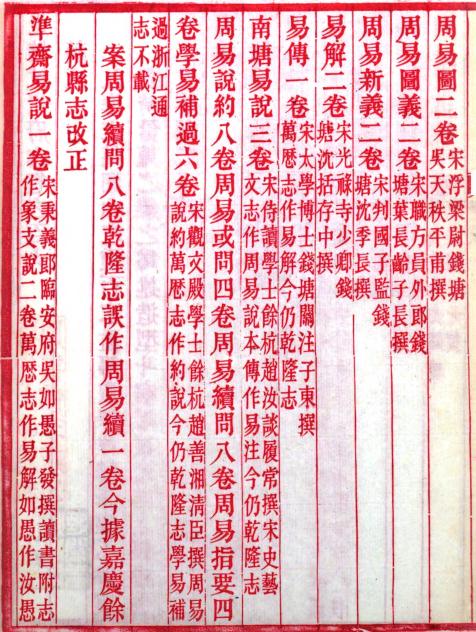 周易圖二卷宋浮梁尉錢塘吳天秩平甫撰
周易圖義二卷宋職方員外郎錢塘葉長齡子長撰
周易新義二卷宋判國子監錢塘沈季長撰
易解二卷宋光祿寺少卿錢塘沈括存中撰
易傳一卷宋太學博士錢塘關注子東撰萬歷志作易解今仍乾隆志
南塘易說三卷宋侍讀學士餘杭趙汝談履常撰宋史藝文志作周易說本傳作易注今仍乾隆志
周易說約八卷周易或問四卷周易續問八卷周易指要四
卷學易補過六卷宋觀文殿學士餘杭趙善湘淸臣撰周易說約萬歷志作約說今仍乾隆志學易補
過浙江通志不載
案周易續問八卷乾隆志誤作周易續一卷今據嘉慶餘
杭縣志改正
準齋易說一卷宋秉義郎臨安府吳如愚子發撰讀書附志作象爻說二卷萬歷志作易解如愚作汝愚